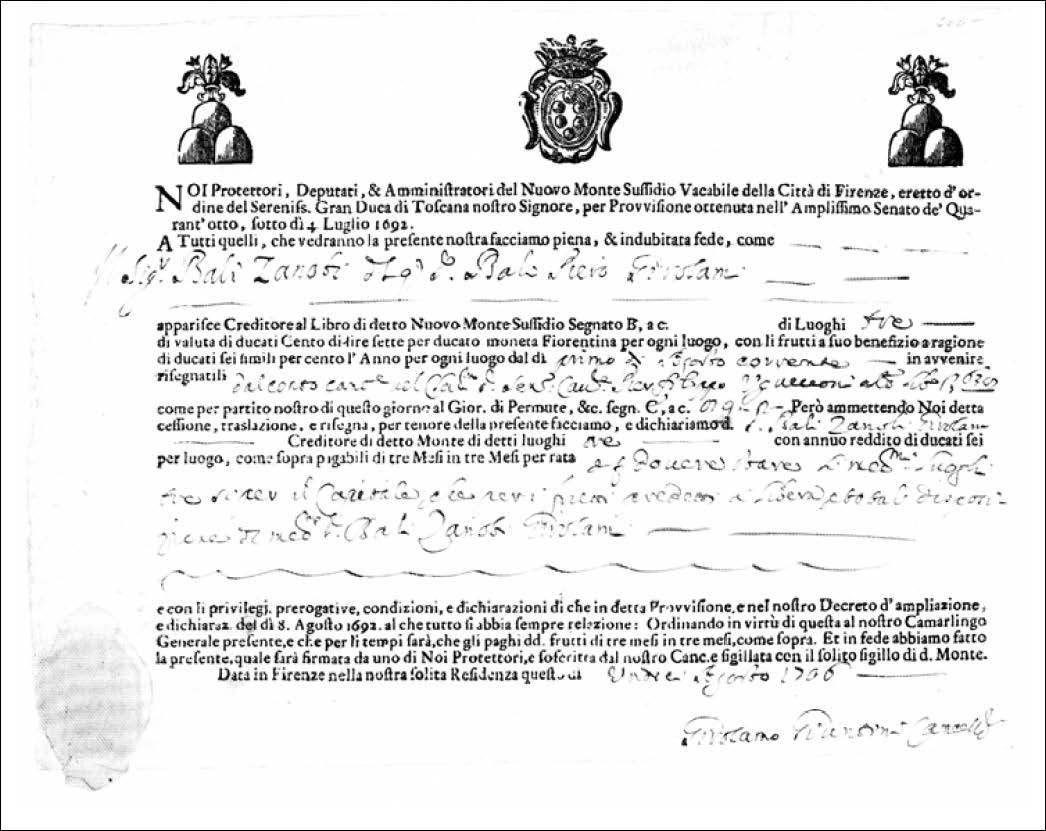 NOI Protettori, Deputati, & Amministratori del Nuovo Monte Sussidio Vacabile della Città di Firenze, eretto d'or-
dine del Sereniss. Gran Duca di Toscana nostro Signore, per Provvisione ottenuta nell' Amplissimo Senato de' Qua-
rant'otto, sotto dì 4 Luglio 1692.
A Tutti quelli, che vedranno la presente nostra facciamo piena, & indubitata fede, come
Sig.r Balì Zanobi Balì Piero Girolami
apparisce Creditore al Libro di detto Nuovo Monte Sussidio Segnato B, a c. di Luoghi tre
di valuta di ducati Cento di lire sette per ducato moneta Fiorentina per ogni luogo, con li frutti a suo benefizio a ragione
di ducati sei simili per cento l'Anno per ogni luogo dal dì primo di Agosto corrente in avvenire
risegnatili dal conto
come per partito nostro di questo giorno al Gior. di Permute, &c. segn. C, a c. Però ammettendo Noi detta
cessione, traslazione, e risegna, per tenore della presente facciamo, e dichiariamo d. Balì Zanobi Girolami
Creditore di detto Monte di detti luoghi tre con annuo reddito di ducati sei
per luogo, come sopra pigabili di tre Mesi in tre Mesi per rata e dovere stare
tre il Capitale che libera
Balì Zanobi Girolami
e con li privilegj, prerogative, condizioni, e dichiarazioni di che in detta Provvisione, e nel nostro Decreto d'ampliazione,
e dichiaraz. del dì 8. Agosto 1692. al che tutto si abbia sempre relazione: Ordinando in virtù di questa al nostro Camarlingo
Generale presente, e che per li tempi sarà, che gli paghi dd. frutti di tre mesi in tre mesi, come sopra. Et in fede abbiamo fatto
la presente, quale sarà firmata da uno di Noi Protettori, e soscritta dal nostro Canc. e sigillata con il solito sigillo di d. Monte.
Data in Firenze nella nostra solita Residenza questo dì Undici Agosto 1706
Girolamo